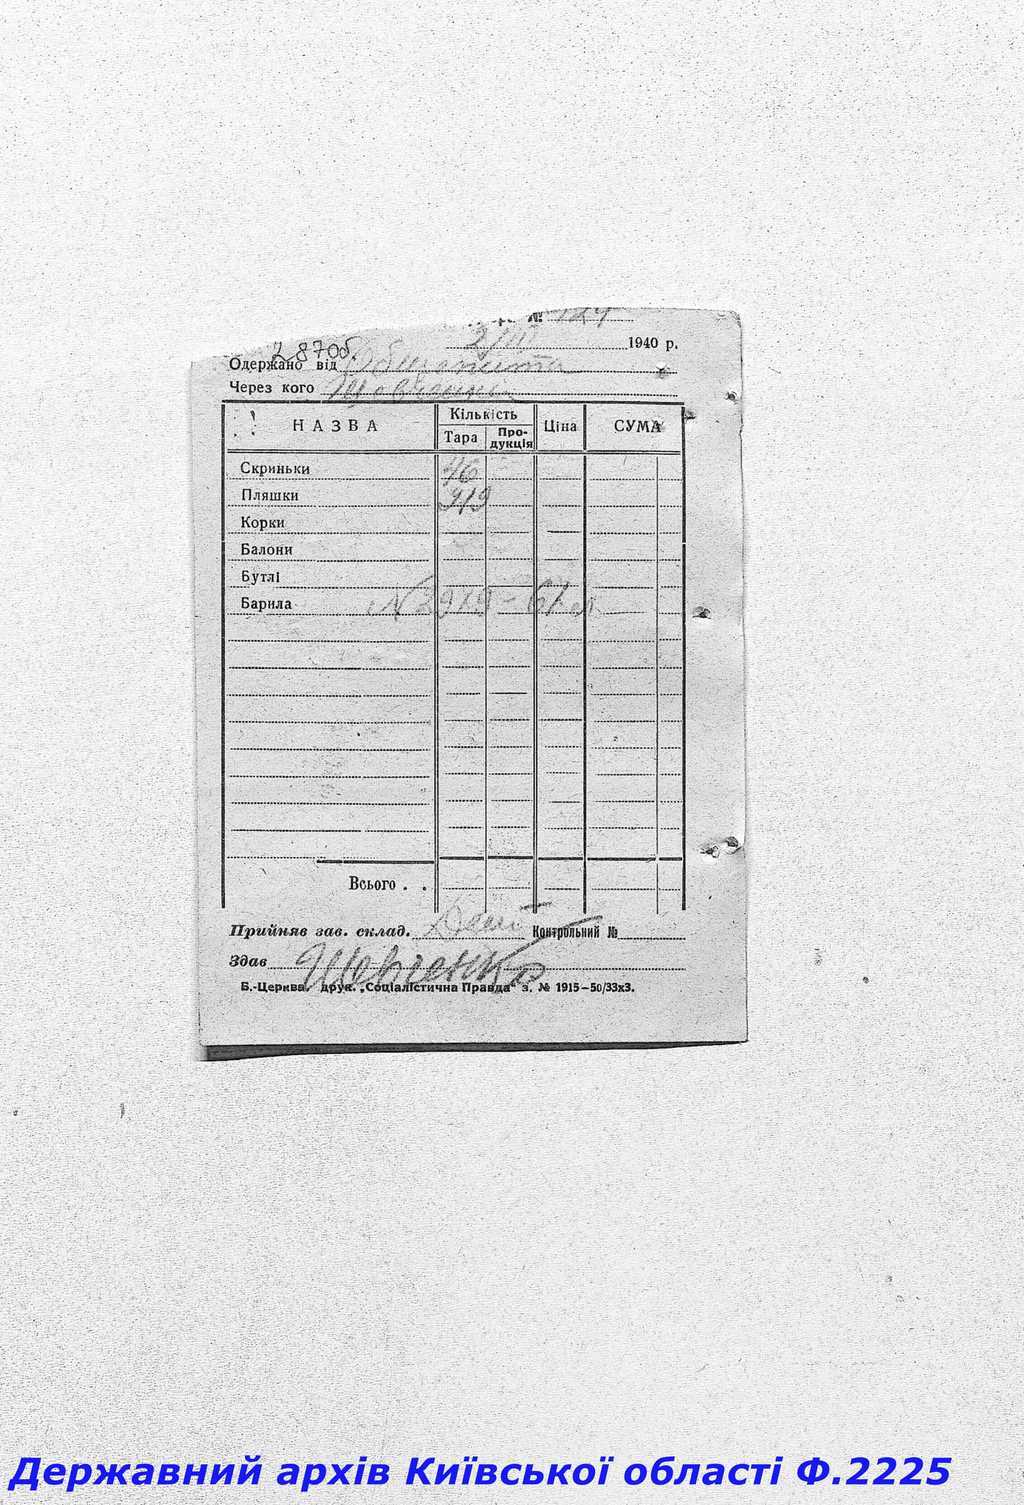 № 124
2/III 1940 р.
2870б.
Одержано від
Через кого Шевченко
НАЗВА Кількість Ціна СУМА
Тара Продукція
Скриньки 46
Пляшки 919
Корки
Балони
Бутлі
Барила № 2919 – 67 л
Всього . .
Прийняв зав. склад. Контрольний №
Здав Шевченко
Б.-Церква. друк. „Соціалістична Правда" з. № 1915–50/33х3.
Державний архів Київської області Ф.2225